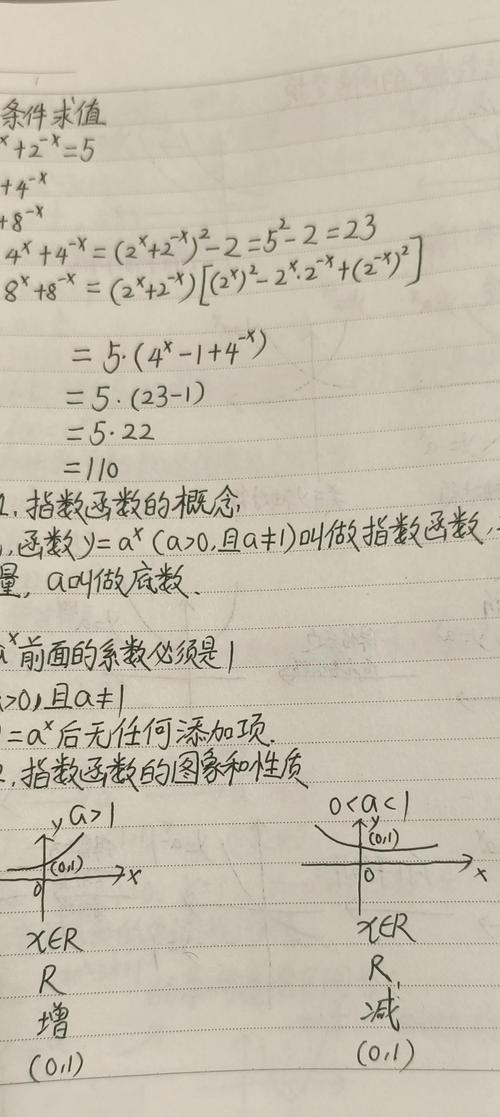 条件求值
x+2^-x=5
+4^-x
+8^-x
4^x+4^-x=(2^x+2^-x)^2-2=5^2-2=23
8^x+8^-x=(2^x+2^-x)[(2^x)^2-2^x·2^-x+(2^-x)^2]
=5·(4^x-1+4^-x)
=5·(23-1)
=5·22
=110
1,指数函数的概念,
,函数y=a^x(a>0,且a≠1)叫做指数函数,
量,a叫做底数.
a^x前面的系数必须是1
>0,且a≠1
=a^x后无任何添加项.
2,指数函数的图象和性质
y a>1 0<a<1 y
(0,1) (0,1)
0 x 0 x
x∈R x∈R
R R
增 减
(0,1) (0,1)